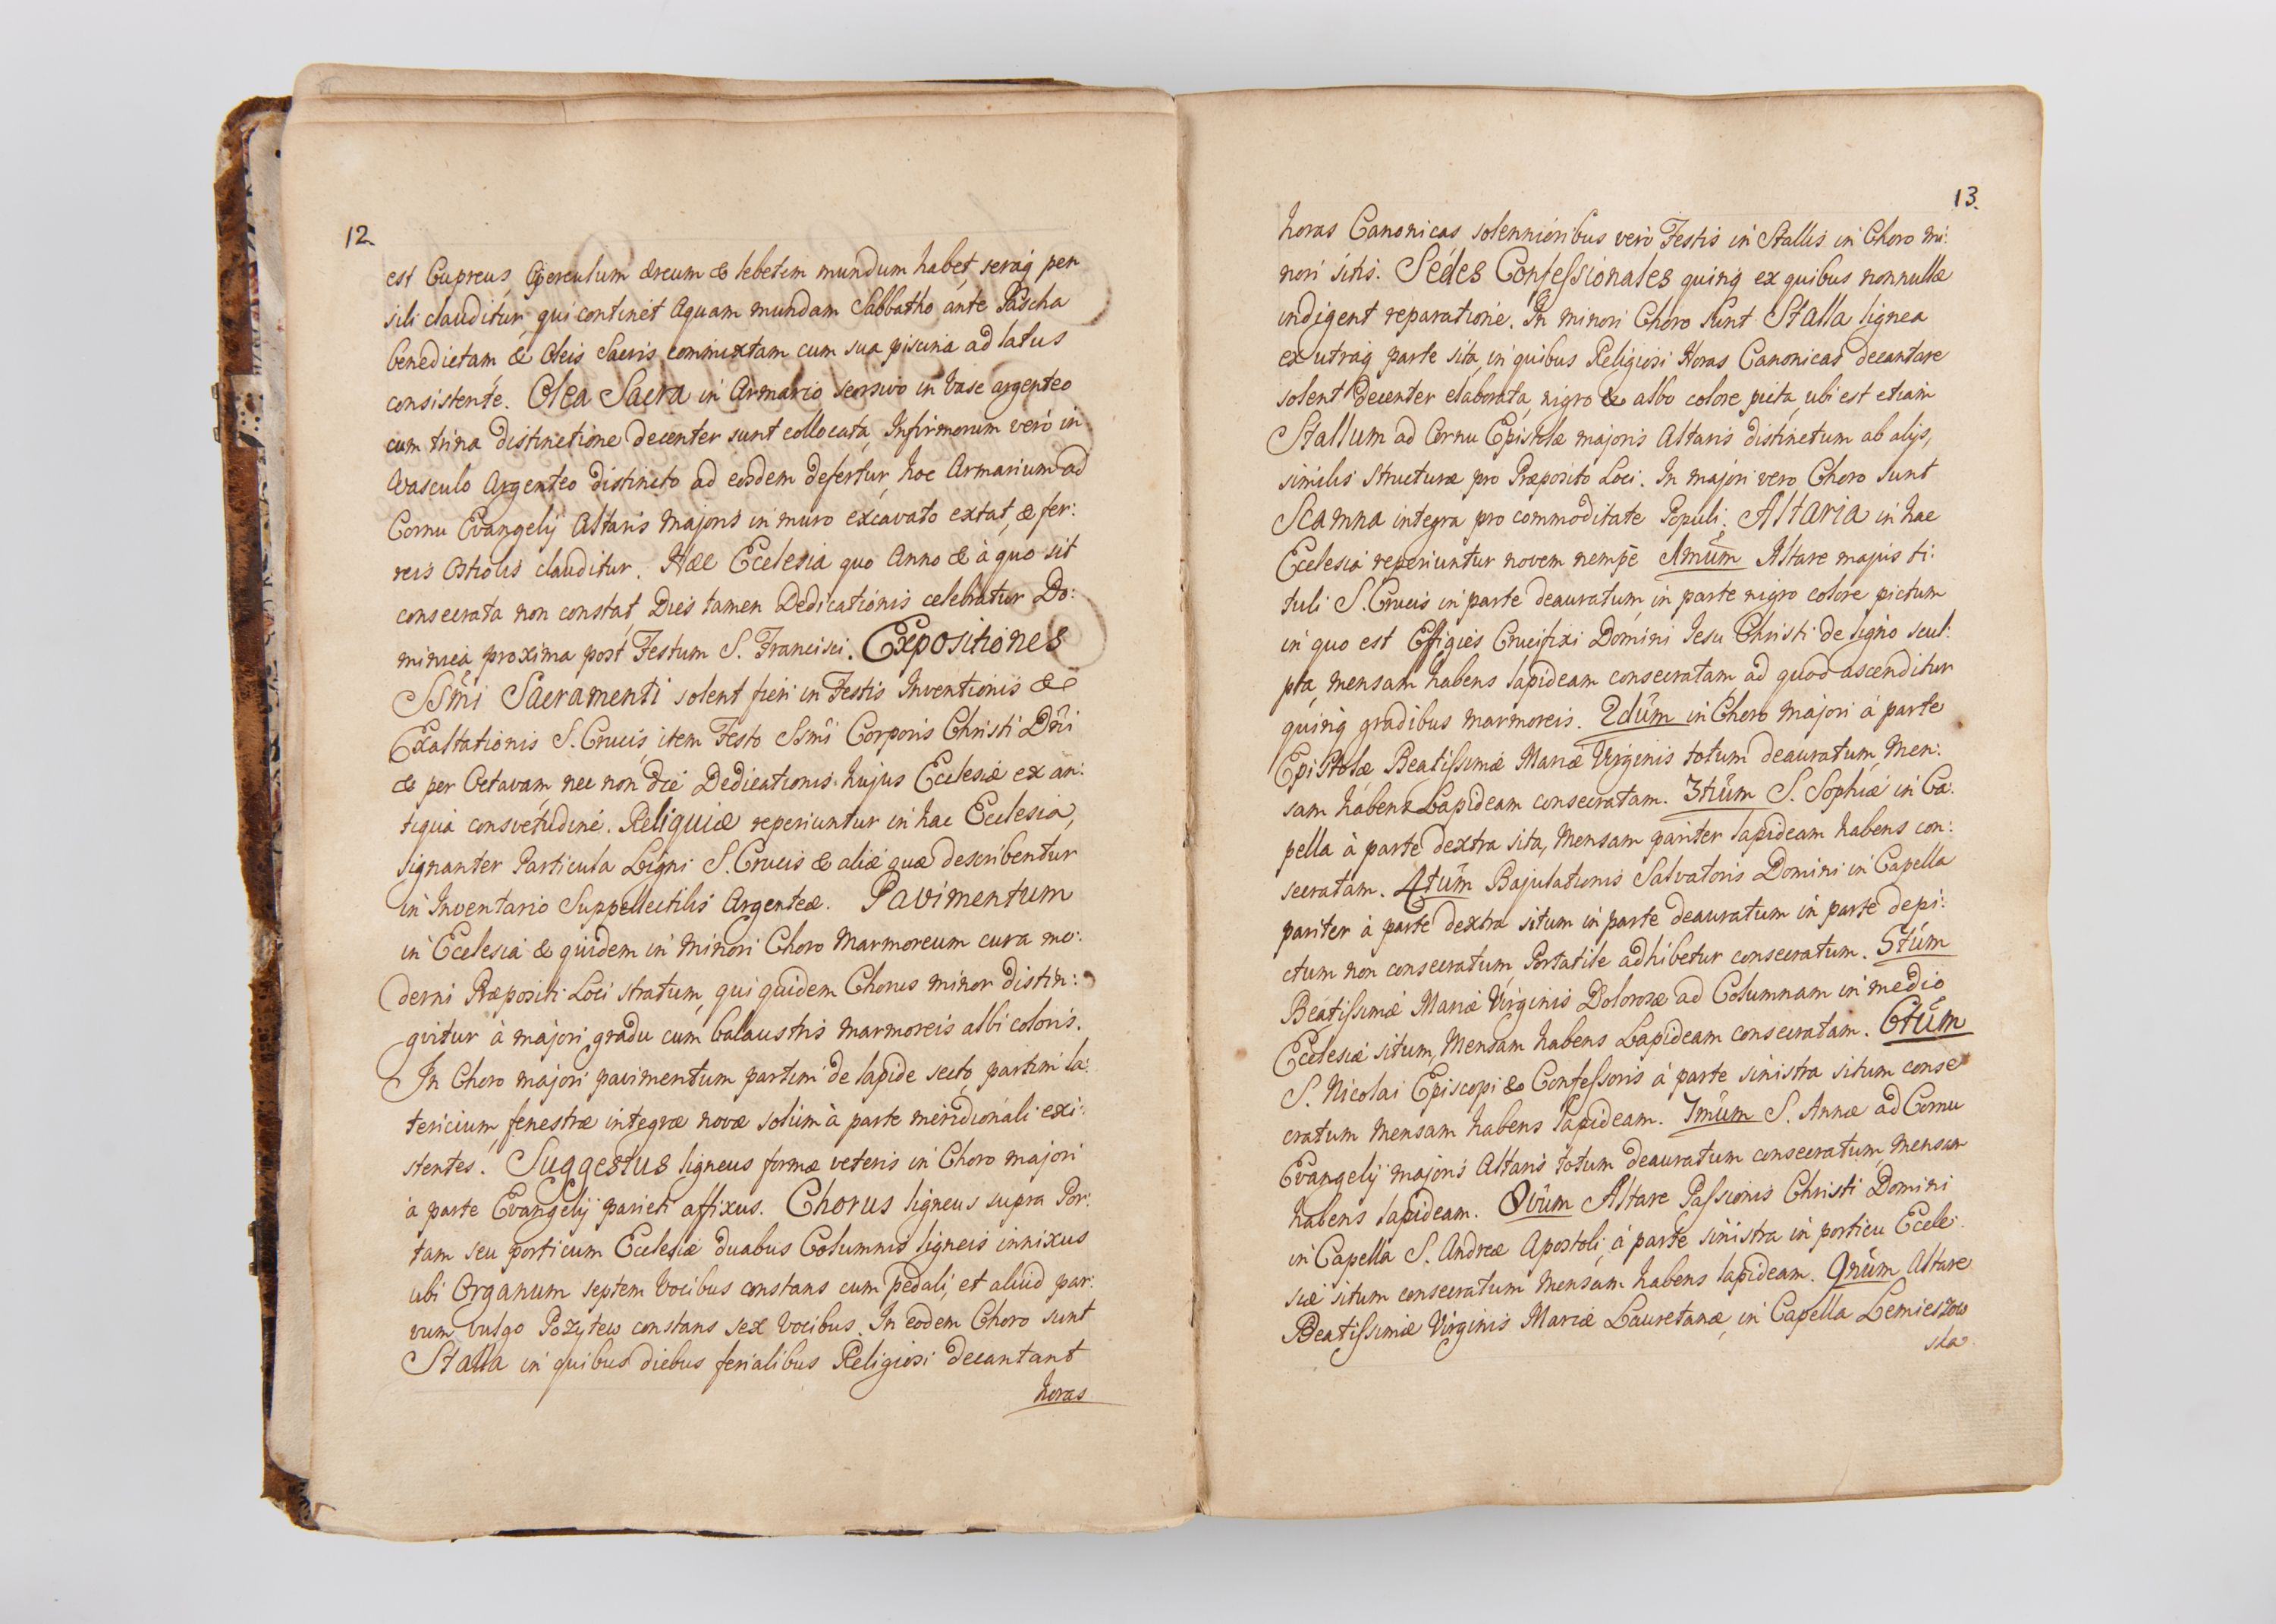 12.
est Cupreus, Operculum æreum & lebetem mundum habet, seraq́ pen
sili clauditur, qui continet Aquam mundam Sabbatho ante Pascha
benedictam & Oleis Sacris commixtam cum sua piscina ad latus
consistente. Olea Sacra in Armario seorsivo in Vase argenteo
cum trina distinctione decenter sunt collocata, Infirmorum verò in
Vasculo Argenteo distincto ad eosdem defertur, hoc Armarium ad
Cornu Evangelij Altaris Majoris in muro excavato extat, & fer:
reis Ostiolis clauditur. Hæc Ecclesia quo Anno & à quo sit
consecrata non constat, Dies tamen Dedicationis celebratur Do:
minica proxima post Festum S. Francisci. Expositiones
Ssm̃i Sacramenti solent fieri in Festis Inventionis &
Exaltationis S. Crucis, item Festo Ssmĩ Corporis Christi Dñi
& per Octavam, nec non die Dedicationis hujus Ecclesiæ ex an:
tiqua consvetudine. Reliquiæ reperiuntur in hac Ecclesia,
signanter Particula Ligni S. Crucis & aliæ quæ describentur
in Inventario Suppellectilis Argenteæ. Pavimentum
in Ecclesia & quidem in Minori Choro Marmoreum cura mo:
derni Præpositi Loci stratum, qui quidem Chorus minor distin:
gvitur à majori gradu cum balaustris marmoreis albi coloris.
In Choro majori pavimentum partim de lapide secto, partim la:
tericium, fenestræ integræ novæ solùm à parte meridionali exi:
stentes. Suggestus ligneus formæ veteris in Choro majori
à parte Evangelij parieti affixus. Chorus ligneus supra Por:
tam seu porticum Ecclesiæ duabus Columnis ligneis innixus
ubi Organum septem Vocibus constans cum pedali, et aliud par:
vum vulgo Pozytew constans sex Vocibus. In eodem Choro sunt
Stalla in quibus diebus ferialibus Religiosi decantant
horas
13.
horas Canonicas, solennioribus verò Festis in Stallis in Choro mi:
nori sitis. Sedes Confessionales quinq́ ex quibus nonnullæ
indigent reparatione. In minori Choro sunt Stalla lignea
ex utraq́ parte sita, in quibus Religiosi Horas Canonicas decantare
solent decenter elaborata, nigro & albo colore picta, ubi est etiam
Stallum ad Cornu Epistolæ majoris Altaris distinctum ab alijs,
similis structuræ pro Præposito Loci. In majori vero Choro sunt
Scamna integra pro commoditate Populi. Altaria in hac
Ecclesia reperiuntur novem nempe 1mũm Altare majus ti:
tuli S. Crucis in parte deauratum, in parte nigro colore pictum
in quo est Effigies Crucifixi Domini Iesu Christi de ligno scul:
pta, mensam habens lapideam consecratam ad quod ascenditur
quinq́ gradibus marmoreis. 2dũm in Choro majori à parte
Epistolæ Beatissimæ Mariæ Virginis totum deauratum, Men:
sam habens Lapideam consecratam. 3tiũm S. Sophiæ in Ca:
pella à parte dextra sita, Mensam pariter lapideam habens con:
secratam. 4tũm Bajulationis Salvatoris Domini in Capella
pariter à parte dextra situm in parte deauratum in parte depi:
ctum non consecratum Portatile adhibetur consecratum. 5tũm
Beatissimæ Mariæ Virginis Dolorosæ ad Columnam in medio
Ecclesiæ situm, Mensam habens Lapideam consecratam. 6tũm
S. Nicolai Episcopi & Confessoris à parte sinistra situm conse
cratum mensam habens lapideam. 7mũm S. Annæ ad Cornu
Evangelij majoris Altaris totum deauratum consecratum, mensam
habens lapideam. 8vũm Altare Passionis Christi Domini
in Capella S. Andreæ Apostoli, à parte sinistra in porticu Eccle:
siæ situm consecratum mensam habens lapideam. 9nũm Altare
Beatissimæ Virginis Mariæ Lauretanæ, in Capella Lemieszow
ska